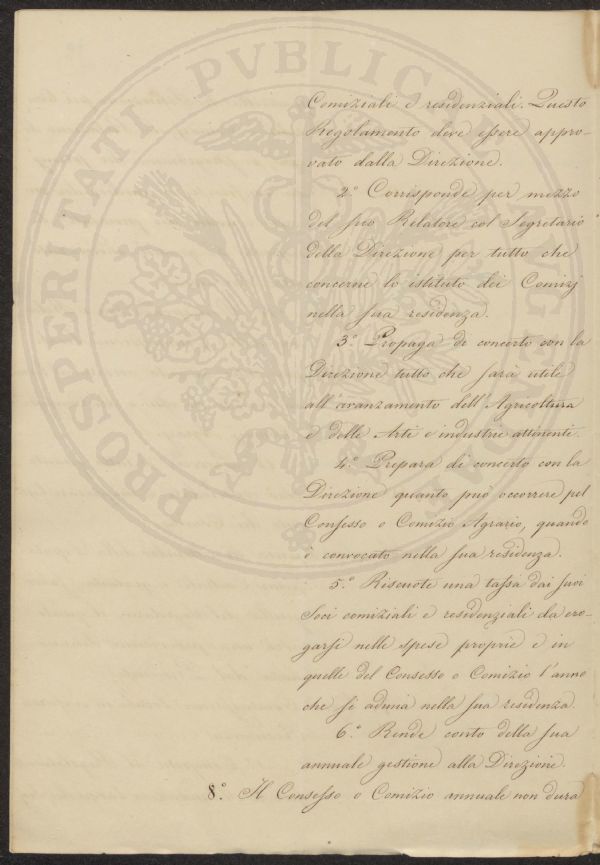 Comiziali e residenziali. Questo
Regolamento deve essere appro-
vato dalla Direzione.
2.° Corrisponde per mezzo
del suo Relatore col Segretario
della Direzione per tutto che
concerne lo istituto dei Comizj
nella sua residenza.
3.° Propaga di concerto con la
Direzione tutto che sarà utile
all'avanzamento dell'Agricoltura
e delle Arti e industrie attinenti.
4.° Prepara di concerto con la
Direzione quanto può occorrere pel
Consesso o Comizio Agrario, quando
è convocato nella sua residenza.
5.° Riscuote una tassa dai suoi
Soci comiziali e residenziali da ero-
garsi nelle spese proprie e in
quelle del Consesso o Comizio l'anno
che si aduna nella sua residenza.
6.° Rende conto della sua
annuale gestione alla Direzione.
8.° Il Consesso o Comizio annuale non dura
PROSPERITATI PVBLICAE